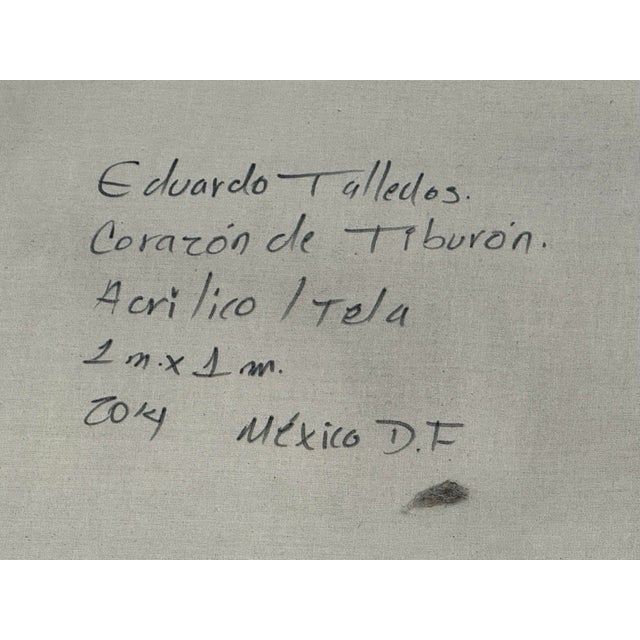 Eduardo Talledos.
Corazón de Tiburón.
Acrílico / Tela
1 m. x 1 m.
2014 México D.F